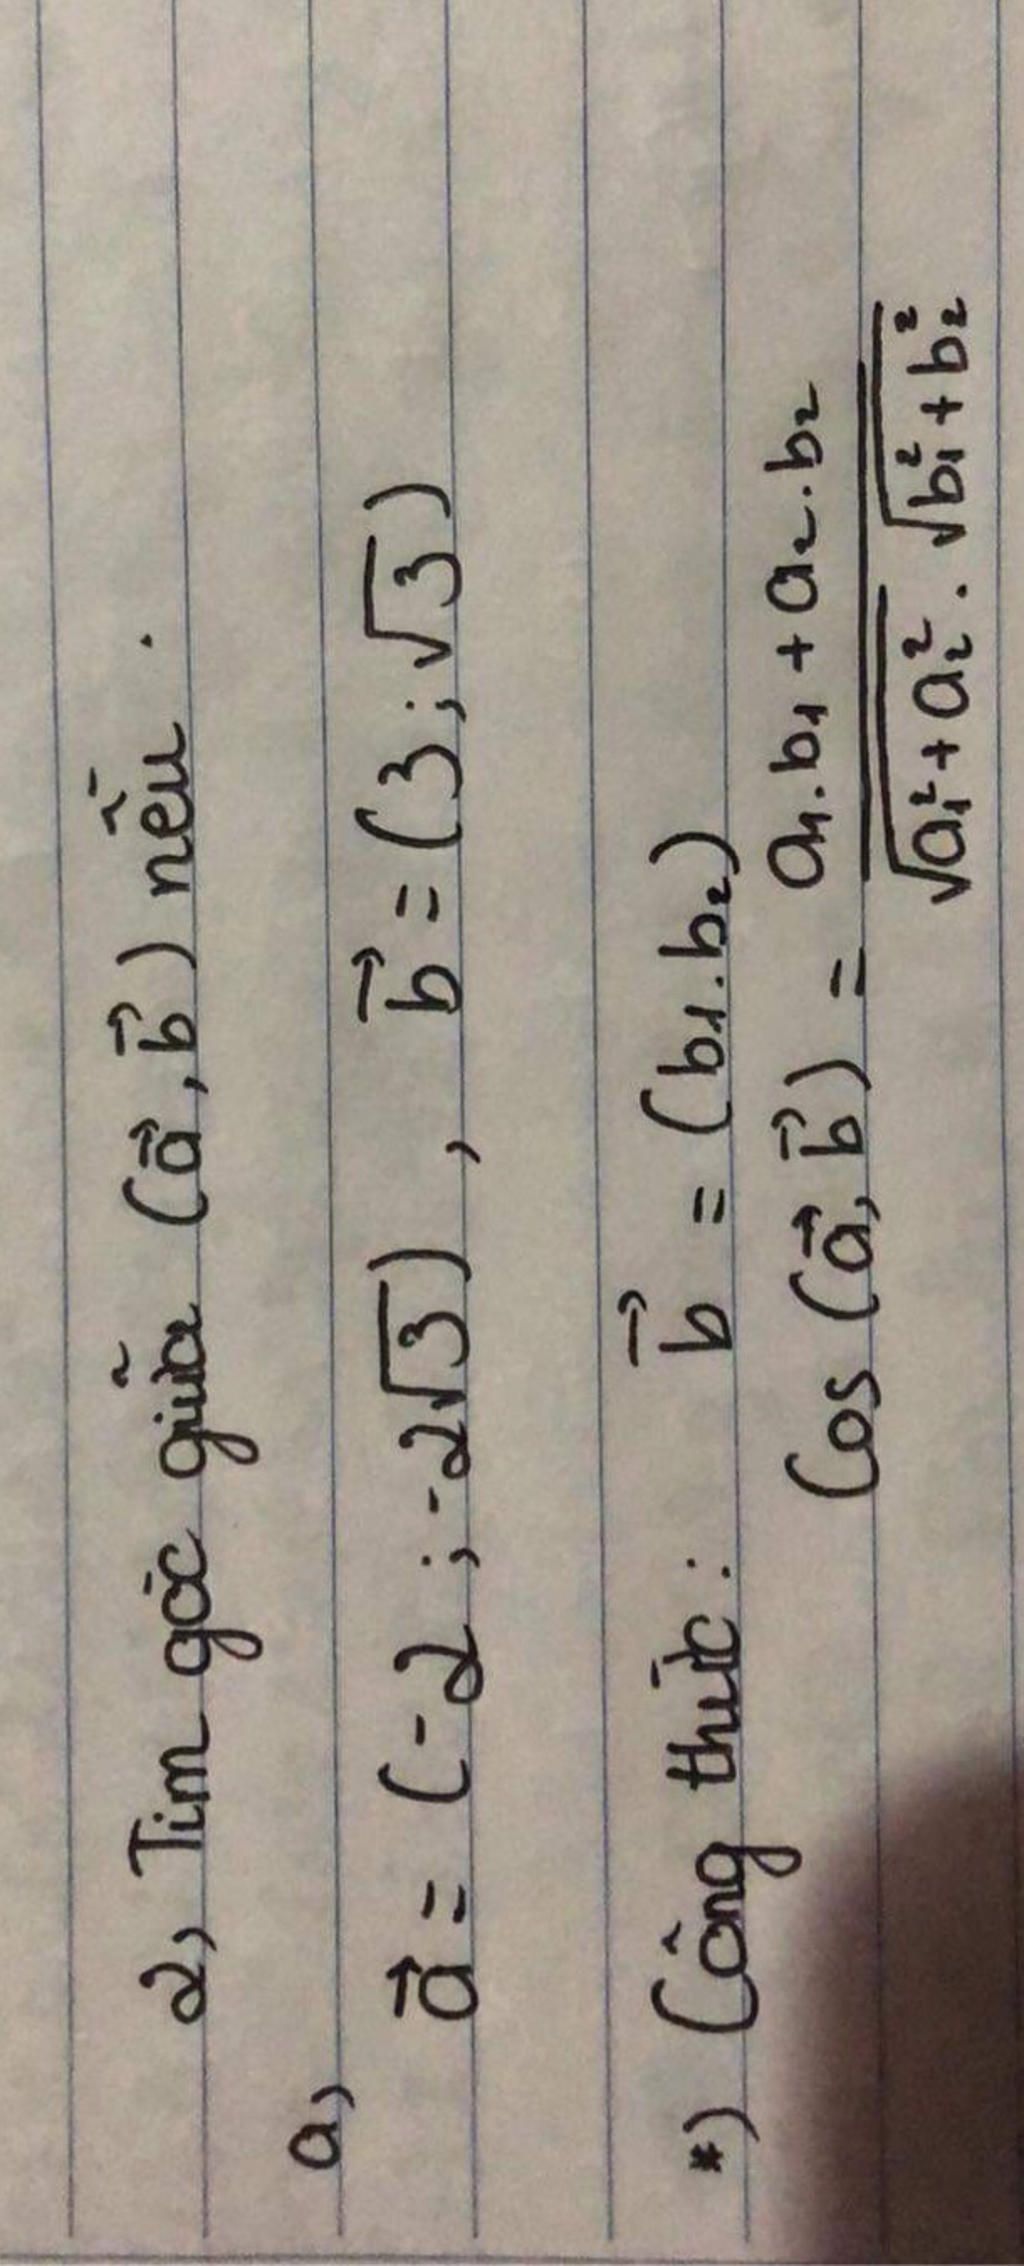 2, Tìm góc giữa (a⃗, b⃗) nếu.
a,
a⃗ = (-2; -2√3), b⃗ = (3; √3)
*) Công thức: b⃗ = (b₁.b₂)
Cos (a⃗, b⃗) = (a₁.b₁ + a₂.b₂) / (√(a₁² + a₂²) . √(b₁² + b₂²))